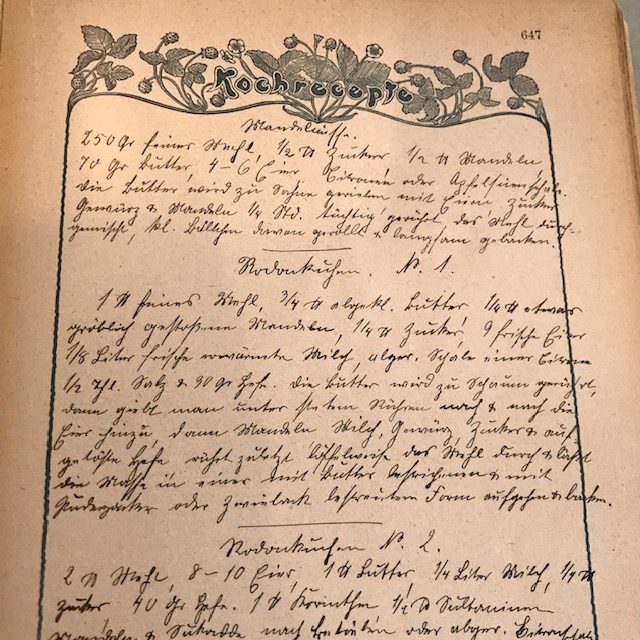 647
Kochrecepte
Mandelnüsse.
250 Gr feines Mehl, 1/2 ℔ Zucker, 1/2 ℔ Mandeln,
70 Gr Butter, 4–6 Eier, Citronen oder Apfelsinenschale.
Die Butter wird zu Sahne gerieben mit Eiern, Zucker
Gewürz & Mandeln 1/4 Std. tüchtig gerührt das Mehl durch-
gemischt, kl. Bällchen davon gerollt & langsam gebacken.
Rodonkuchen. No. 1.
1 ℔ feines Mehl, 3/4 ℔ abgekl. Butter, 1/4 ℔ etwas
gröblich gestoßene Mandeln, 1/4 ℔ Zucker, 9 frische Eier
1/8 Liter frische erwärmte Milch, abger. Schale einer Citrone
1/2 Thl. Salz & 30 Gr Hefe. Die Butter wird zu Schaum gerührt,
dann giebt man unter stetem Rühren nach & nach die
Eier hinzu, dann Mandeln Milch, Gewürz, Zucker & auf-
gelöste Hefe rührt zuletzt löffelweise das Mehl durch & läßt
die Masse in einer mit Butter bestrichenen & mit
Puderzucker oder Zwieback bestreuten Form aufgehn & backen.
Rodonkuchen No. 2.
2 ℔ Mehl, 8–10 Eier, 1 ℔ Butter, 1/4 Liter Milch, 1/2 ℔
Zucker 40 Gr Hefe. 1 ℔ Korinthen, 1/2 ℔ Sultaninen
Mandeln & Sukkade nach Belieben oder abger.